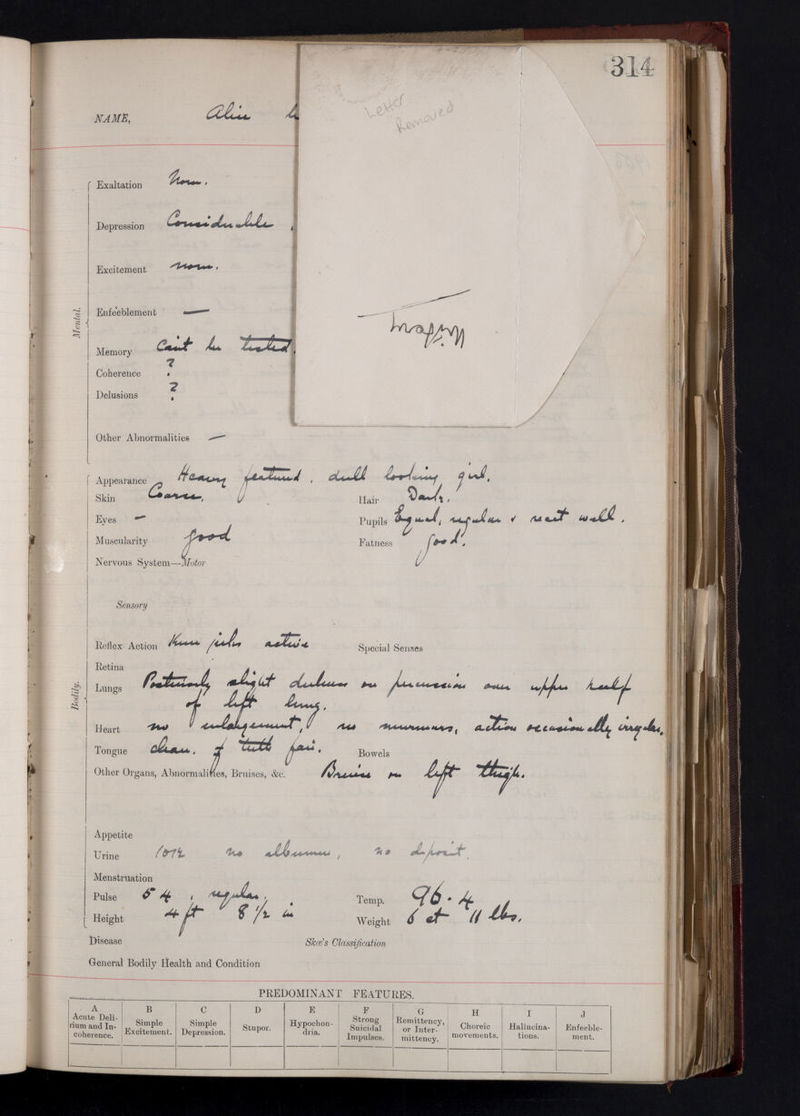 314
NAME, Alice
Letter
Removed
Mental.
Exaltation None.
Depression Considerable.
Excitement None.
Enfeeblement —
Memory Can't be tested.
Coherence ?
Delusions ?
Other Abnormalities —
Bodily.
Appearance Heavy featured, dull looking girl.
Skin Coarse, Hair Dark.
Eyes — Pupils Equal, regular & react well.
Muscularity good Fatness good.
Nervous System—Motor
Sensory
Reflex Action Knee jerks active Special Senses
Retina
Lungs Posteriorly slight dulness on percussion over upper half
of left lung.
Heart no enlargement, no murmurs, action occasionally irregular.
Tongue clean. teeth fair. Bowels
Other Organs, Abnormalities, Bruises, &c. Bruise on left thigh.
Appetite
Urine 1012 no albumen, no deposit.
Menstruation
Pulse 54, regular. Temp. 96.4
Height 4 ft 8 1/2 in Weight 6 st 11 lbs.
Disease Skae's Classification
General Bodily Health and Condition
PREDOMINANT FEATURES.
A B C D E F G H I J
Acute Delirium and Incoherence. Simple Excitement. Simple Depression. Stupor. Hypochondria. Strong Suicidal Impulses. Remittency, or Intermittency. Choreic movements. Hallucinations. Enfeeblement.